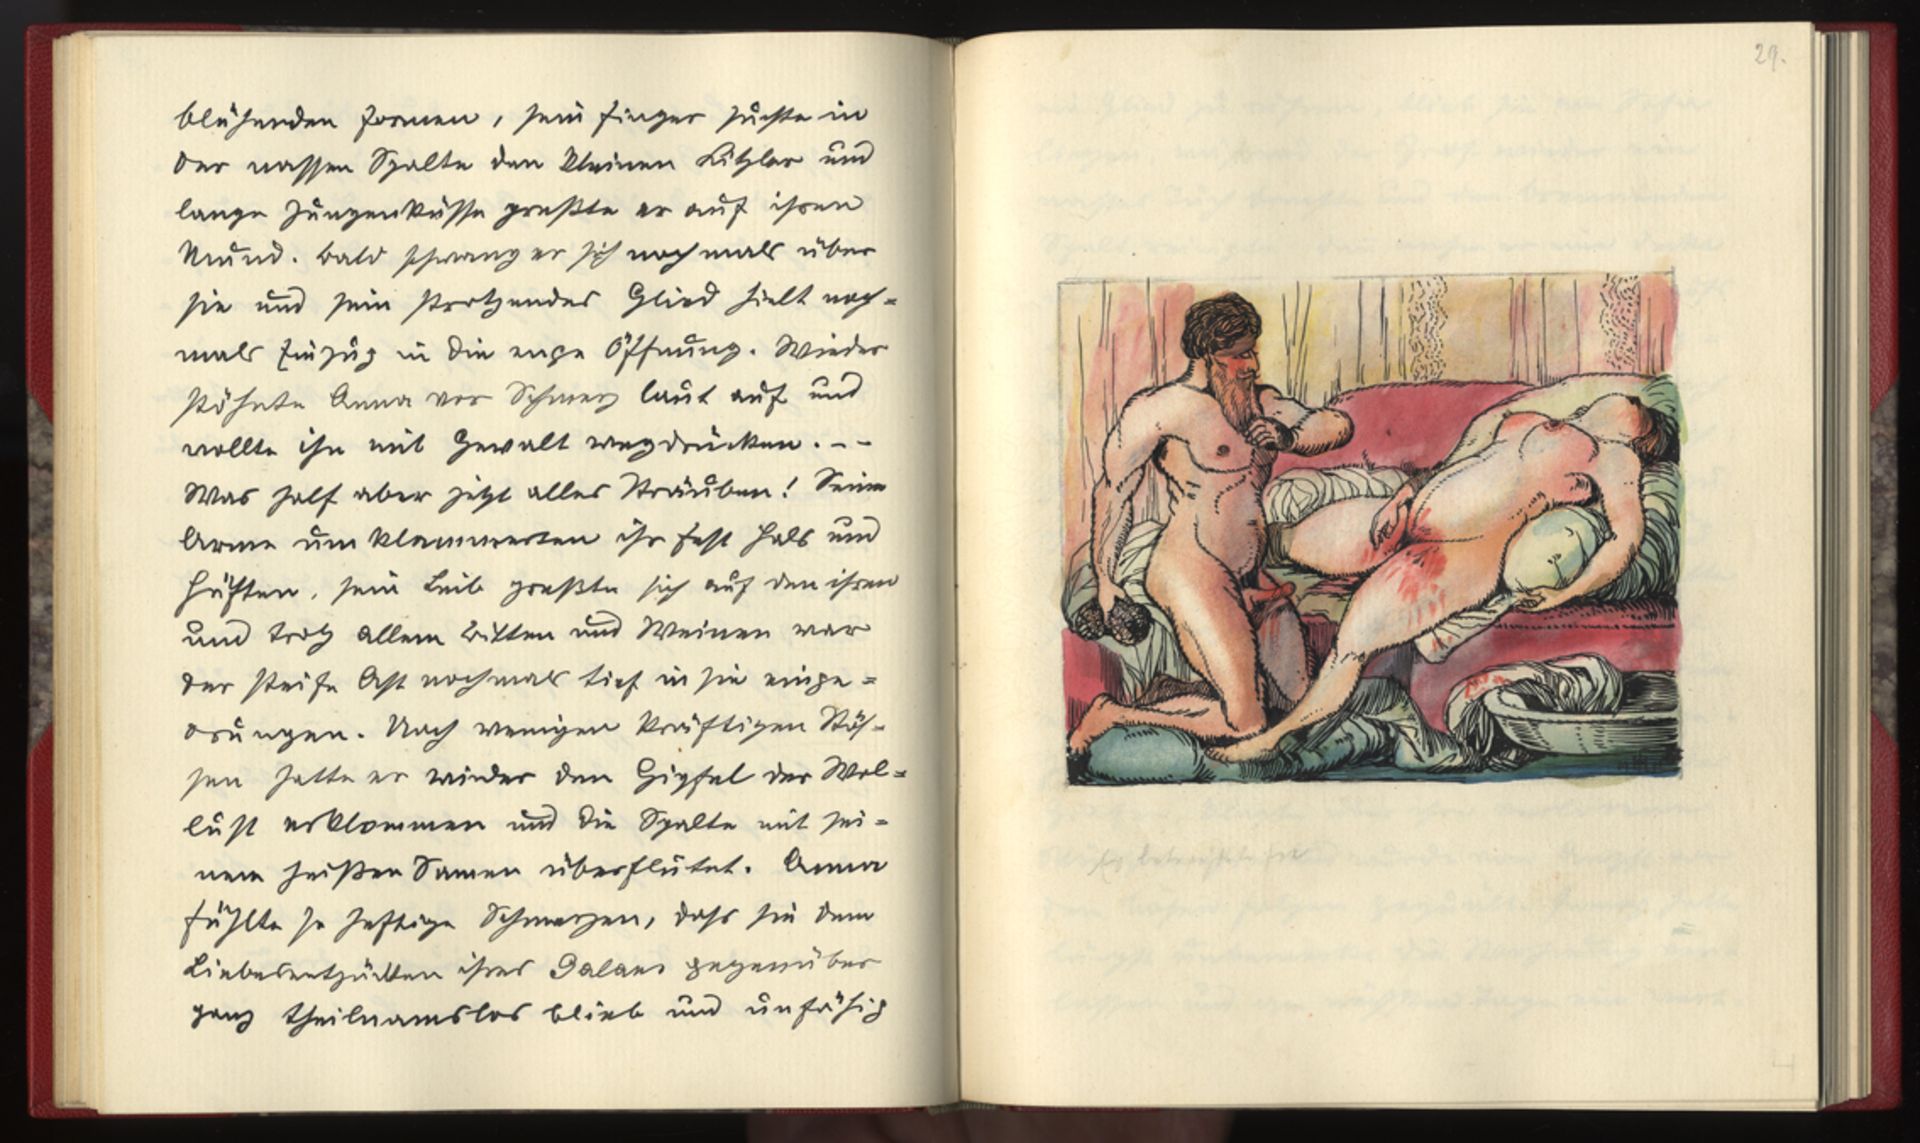 blühenden Formen, sein Finger suchte in
der nassen Spalte den kleinen Kitzler und
lange Zungenküsse preßte er auf ihren
Mund. Bald schwang er sich nochmals über
sie und sein strotzendes Glied hielt noch=
mals Einzug in die enge Öffnung. Wieder
stöhnte Anna vor Schmerz laut auf und
wollte ihn mit Gewalt wegdrücken. - -
Was half aber jetzt alles Sträuben! Seine
Arme umklammerten ihr fest Hals und
Hüften, sein Leib preßte sich auf den ihren
und trotz allem Bitten und Weinen war
der steife Ast nochmals tief in sie einge=
drungen. Nach wenigen kräftigen Stös=
sen hatte er wieder den Gipfel der Wol=
lust erklommen und die Spalte mit sei=
nem heißen Samen überflutet. Anna
fühlte so heftige Schmerzen, dass sie dem
Liebesentzücken ihres Galans gegenüber
ganz theilnamslos blieb und unfähig
29.